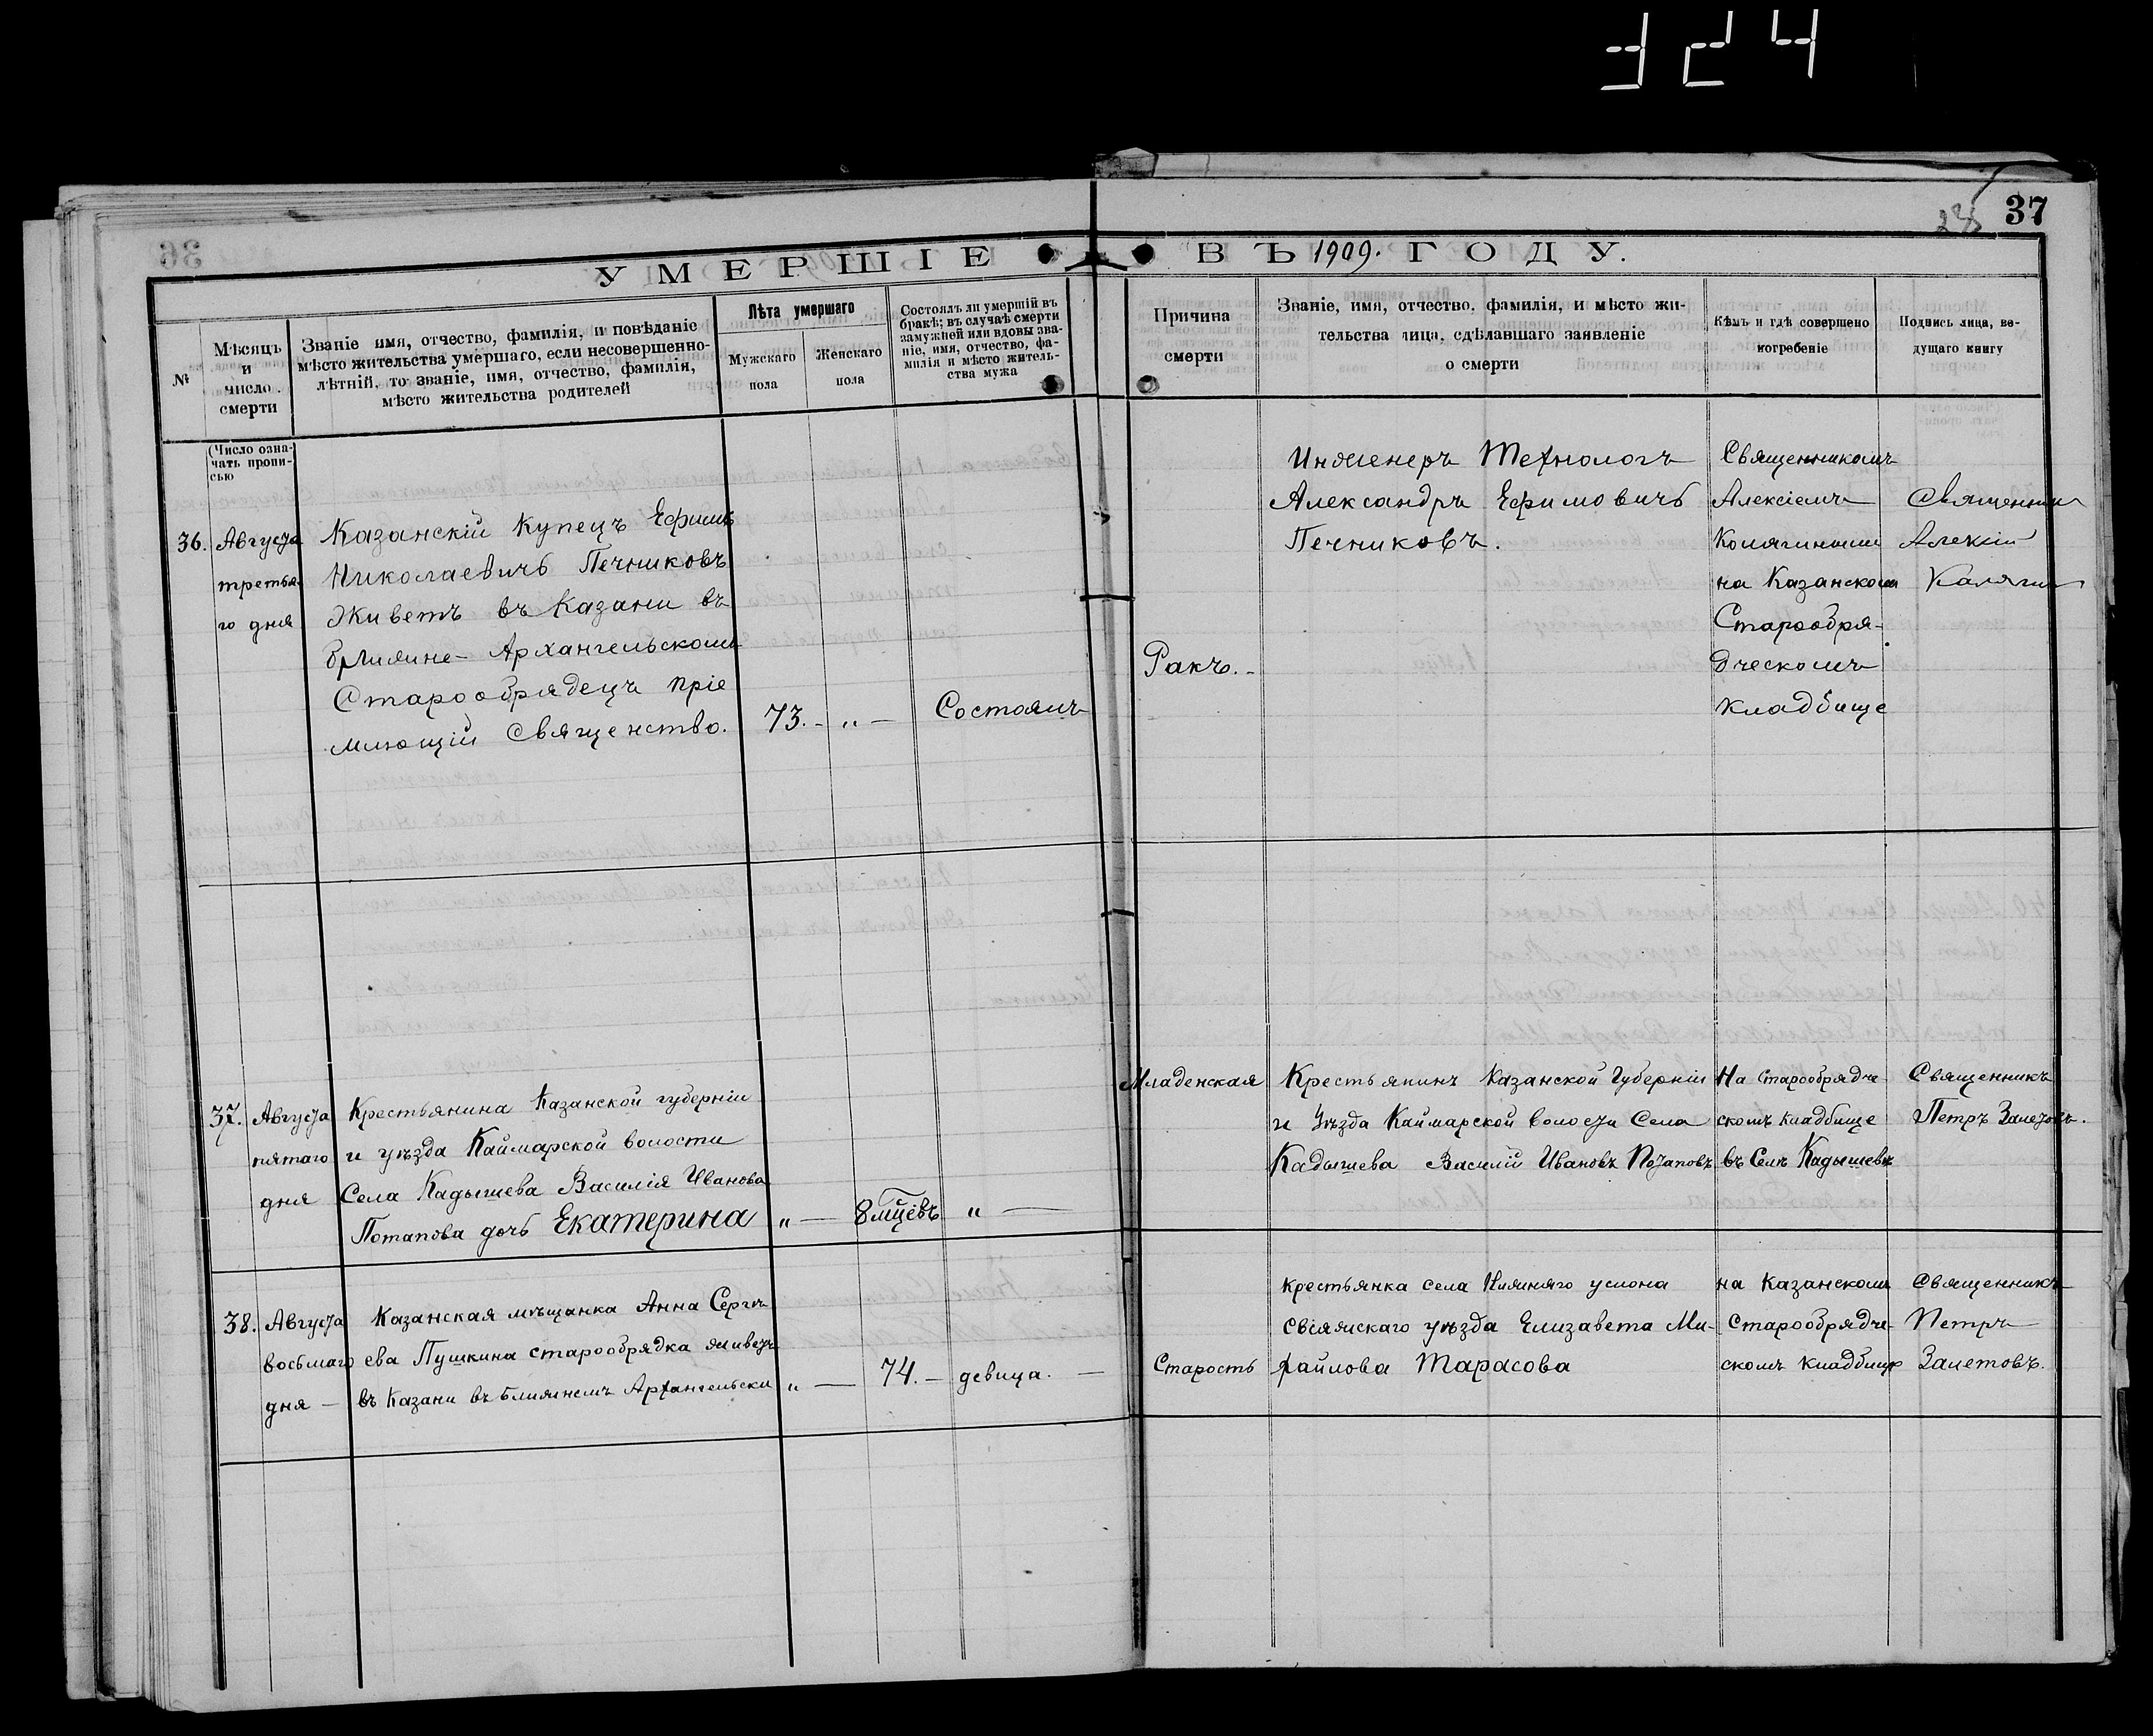 324
37
УМЕРШІЕ ВЪ 1909. ГОДУ.
№
Мѣсяцъ
и
число
смерти
Званіе имя, отчество, фамилія, и повѣданіе
мѣсто жительства умершаго, если несовершенно-
лѣтній, то званіе, имя, отчество, фамилія,
мѣсто жительства родителей
Лѣта умершаго
Мужскаго
пола
Женскаго
пола
Состоялъ ли умершій въ
бракѣ; въ случаѣ смерти
замужней или вдовы зва-
ніе, имя, отчество, фа-
милія и мѣсто житель-
ства мужа
Причина
смерти
Званіе, имя, отчество, фамилія, и мѣсто жи-
тельства лица, сдѣлавшаго заявленіе
о смерти
Кѣмъ и гдѣ совершено
погребеніе
Подпись лица, ве-
дущаго книгу
(Число озна-
чать пропи-
сью
36.
Августа
третья-
го дня
Казанскій Купецъ Ефимъ
Николаевичъ Печниковъ
Живетъ въ Казани въ
Архангельскомъ
Старообрядецъ пріе
млющій Священство.
73. - „ -
Состоялъ
Ракъ. -
Инженеръ Технологъ
Александръ Ефимовичъ
Печниковъ.
Священникомъ
Алексіемъ
Калягинымъ
на Казанскомъ
Старообря-
дческомъ
кладбище
Священникъ
Алексій
Калягин
37.
Августа
пятаго
дня
Крестьянина Казанской губерніи
и уѣзда Каймарской волости
Села Кадышева Василія Иванова
Потапова дочь Екатерина
„ — 8 мцевъ „ —
Младенская
Крестьянинъ Казанской Губерніи
и Уѣзда Каймарской волости Села
Кадышева Василій Ивановъ Потаповъ
На Старообрядче
скомъ кладбище
въ Селѣ Кадышевѣ
Священникъ
Петръ Залетовъ.
38.
Августа
восьмаго
дня —
Казанская мѣщанка Анна Серге
ева Пушкина старообрядка живетъ
въ Казани въ Ближнемъ Архангельски
„ — 74. — девица. —
Старость
крестьянка села Нижняго услона
Свіяжскаго уѣзда Елизавета Ми-
хайлова Тарасова
на Казанскомъ
Старообрядче-
скомъ кладбище
Священникъ
Петръ
Залетовъ.